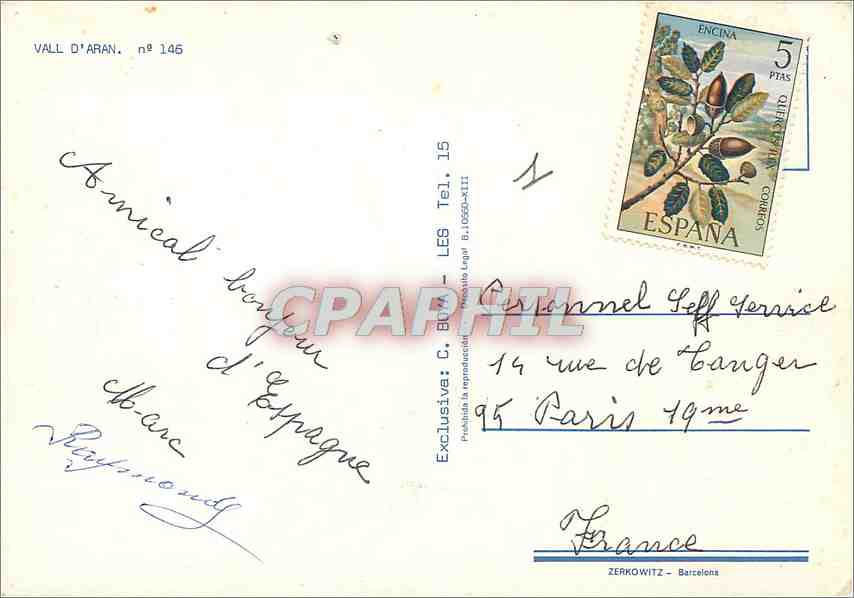 VALL D'ARAN. nº 146
ENCINA
5
PTAS
QUERCUS ILEX
CORREOS
ESPAÑA
F.N.M.T.
Amical bonjour
d'Espagne
Marc
Raymond
Exclusiva: C. BOYA - LES Tel. 15
Prohibida la reproducción - Depósito Legal B.10550-XIII
CPAPHIL
Personnel Seff Service
14 rue de Tanger
95 Paris 19me
France
ZERKOWITZ - Barcelona